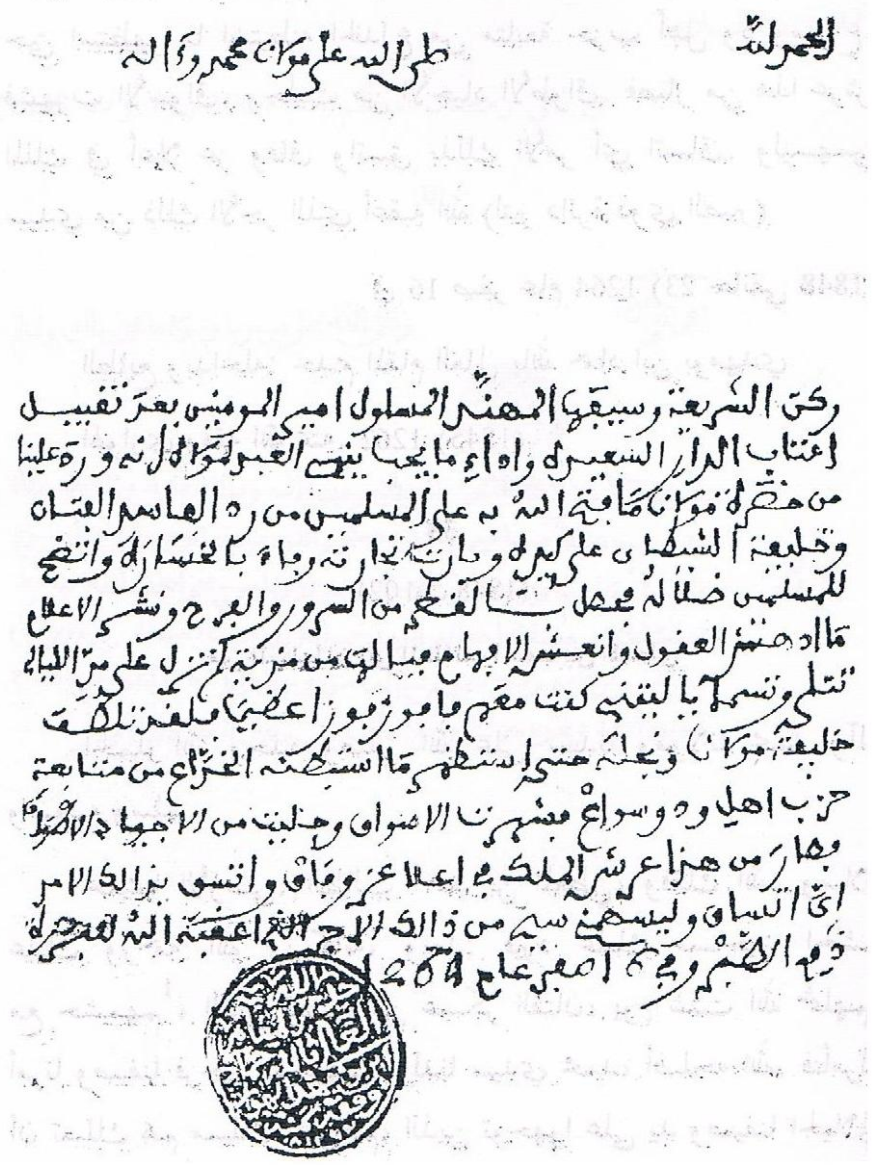 الحمد لله
صلى الله على مولانا محمد وءاله
ركن الشريعة وسيفها المهند المسلول امير المومنين بعد تقبيل
اعتاب الدار السعيدة واداء ما يجب ينهي العبد لمولاه انه ورد علينا
من حضرة مولانا ما فتح الله به على المسلمين من رد الفاسد الفتان
وخليفة الشيطان على كيده وبارت تجارته وباء بالخسارة واتضح
للمسلمين ضلاله فحصل من السرور والفرح ونشر الاعلام
ما ادهش العقول وانعش الافهام فيالها من مزية لم تزل على مر الليالي
تتلى وتسمى يا ليتني كنت معهم فافوز فوزا عظيما فلقد تلطف
خليفة مولانا ونجله حتى استظهر ما استبطنه الخداع من متابعة
حزب اهل ود وسواع فشهرت الاسواق وجلبت من الاجياد الاطواق
فصار من هذا عرش الملك في اعلا عز وفاق واتسق بذالك الامر
اي اتساق وليسهمني سيدي من ذالك الاجر الذي اعقبه الله لحضرة
ذوي الصبر وفي 16 صفر عام 1264